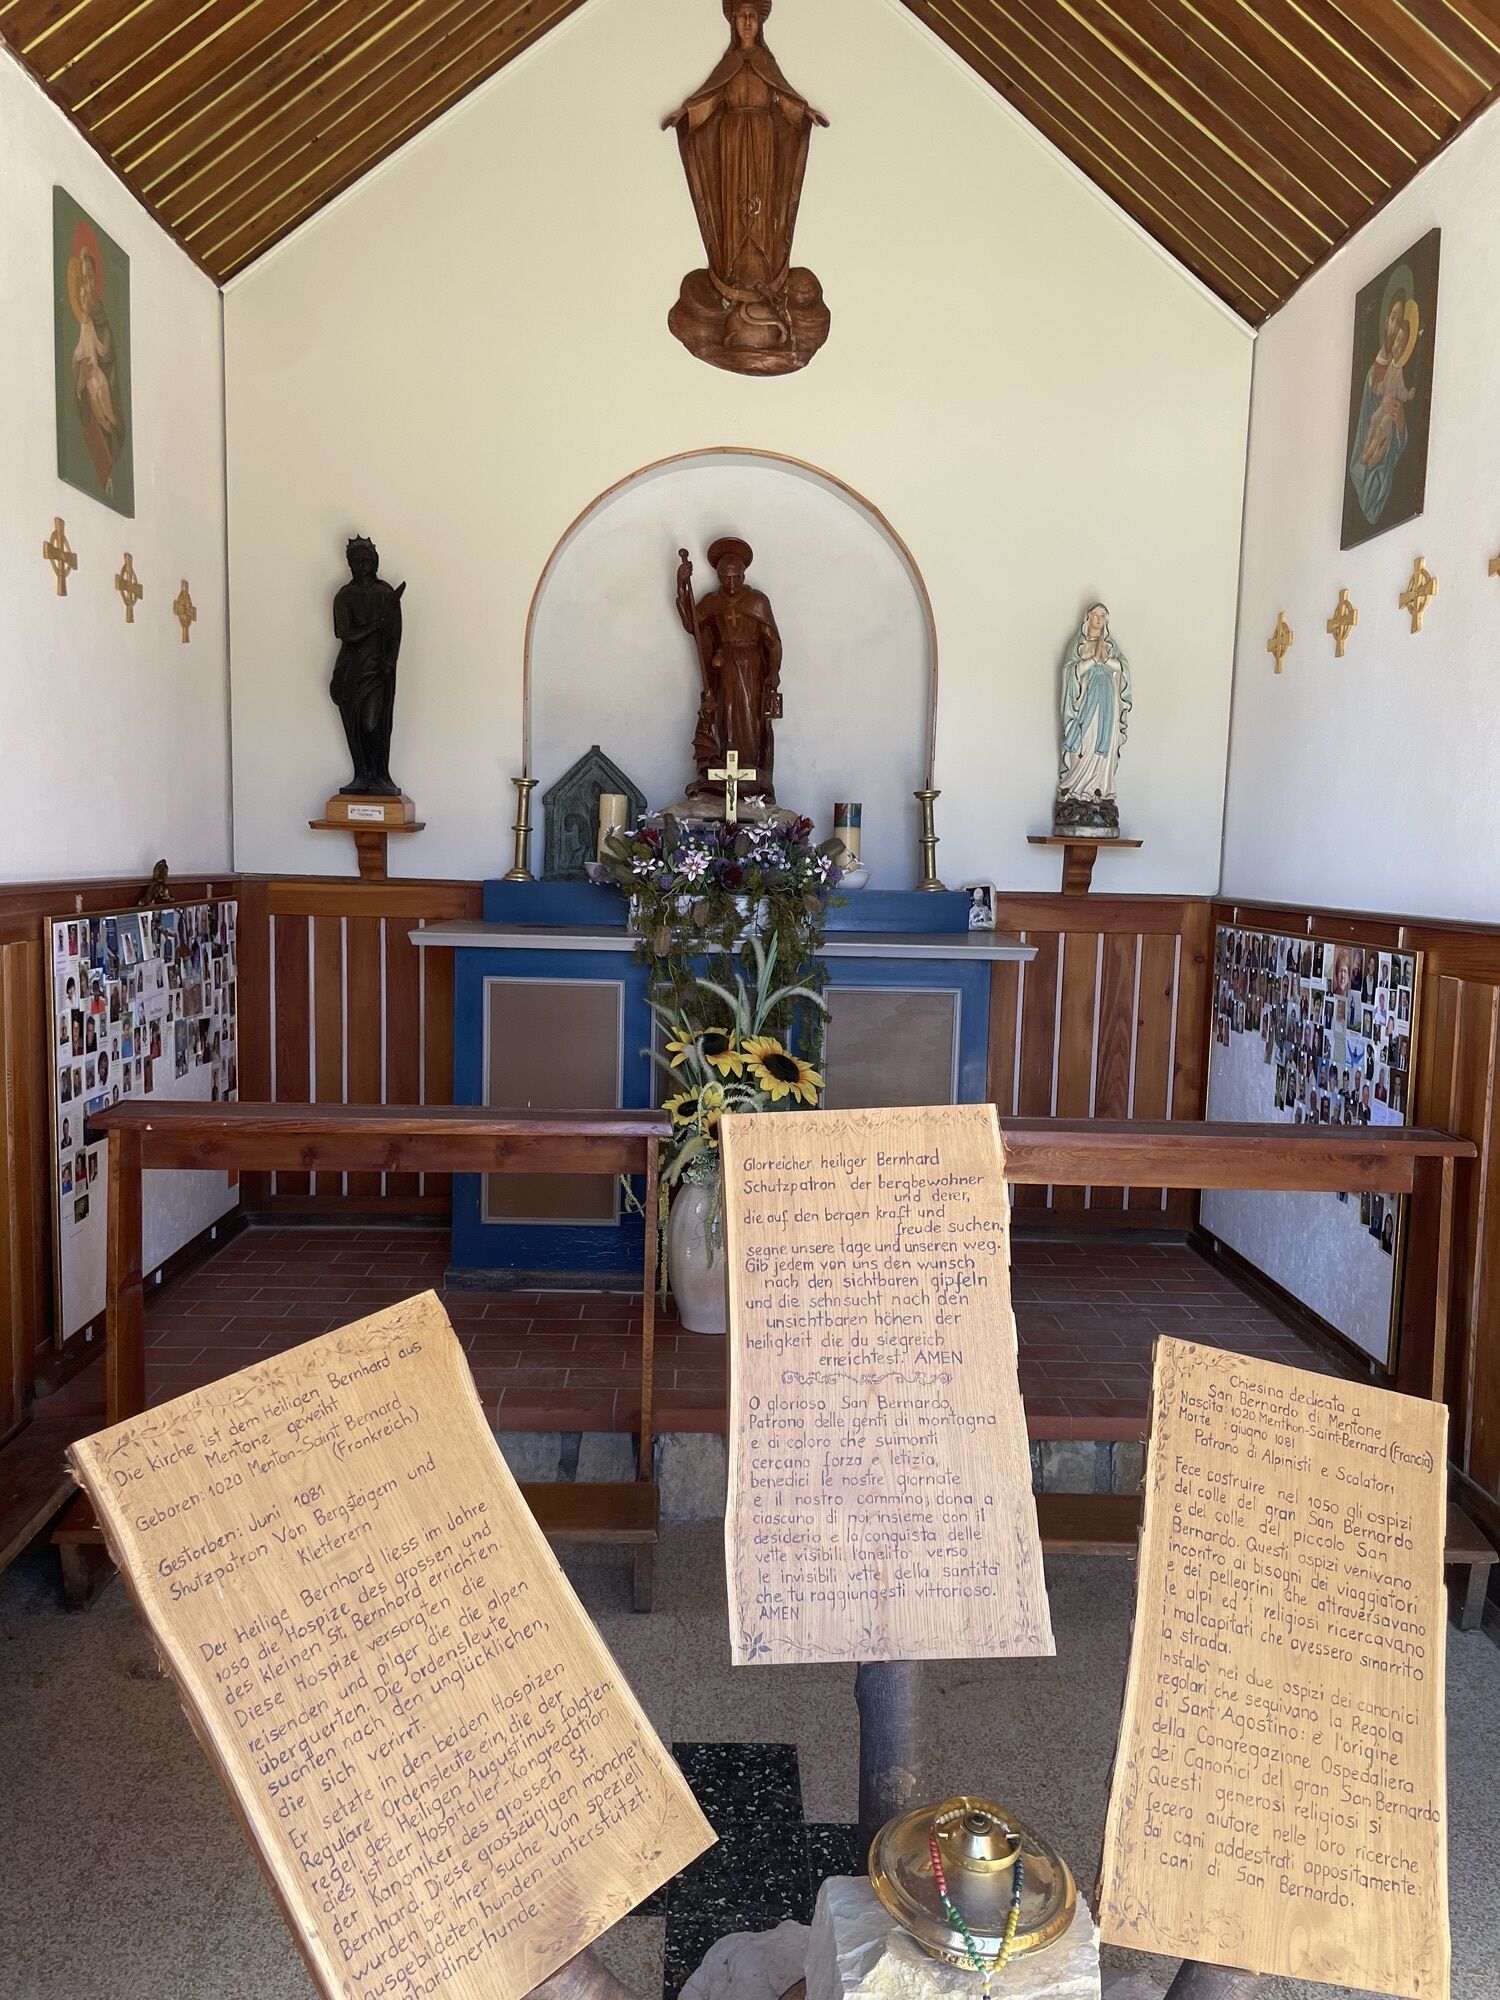 Die Kirche ist dem Heiligen Bernhard aus
Mentone geweiht
Geboren: 1020 Menton-Saint Bernard
(Frankreich)
Gestorben: Juni 1081
Shutzpatron Von Bergsteigern und
Kletterern
Der Heilige Bernhard liess im Jahre
1050 die Hospize des grossen und
des kleinen St. Bernhard errichten.
Diese Hospize versorgten die
reisenden und pilger die die alpen
überquerten. Die ordensleute
suchten nach den unglücklichen,
die sich verirrt.
Er setzte in den beiden Hospizen
Reguläre Ordensleute ein, die der
regel des Heiligen Augustinus folgten:
dies ist der Hospitaller-Kongregation
der Kanoniker des grossen St.
Bernhard. Diese grosszügigen mönche
wurden bei ihrer suche von speziell
ausgebildeten hunden unterstützt:
nhardinerhunde.
Glorreicher heiliger Bernhard
Schutzpatron der bergbewohner
und derer,
die auf den bergen kraft und
freude suchen,
segne unsere tage und unseren weg.
Gib jedem von uns den wunsch
nach den sichtbaren gipfeln
und die sehnsucht nach den
unsichtbaren höhen der
heiligkeit die du siegreich
erreichtest. AMEN
O glorioso San Bernardo,
Patrono delle genti di montagna
e di coloro che sui monti
cercano forza e letizia,
benedici le nostre giornate
e il nostro cammino, dona a
ciascuno di noi, insieme con il
desiderio e la conquista delle
vette visibili, l'anelito verso
le invisibili vette della santità
che tu raggiungesti vittorioso.
AMEN
Chiesina dedicata a
San Bernardo di Mentone
Nascita: 1020 Menthon-Saint-Bernard (Francia)
Morte : giugno 1081
Patrono di Alpinisti e Scalatori
Fece costruire nel 1050 gli ospizi
del colle del gran San Bernardo
e del colle del piccolo San
Bernardo. Questi ospizi venivano
incontro ai bisogni dei viaggiatori
e dei pellegrini che attraversavano
le alpi ed i religiosi ricercavano
i malcapitati che avessero smarrito
la strada.
Installò nei due ospizi dei canonici
regolari che seguivano la Regola
di Sant'Agostino: è l'origine
della Congregazione Ospedaliera
dei Canonici del gran San Bernardo
Questi generosi religiosi si
fecero aiutare nelle loro ricerche
da cani addestrati appositamente:
i cani di San Bernardo.